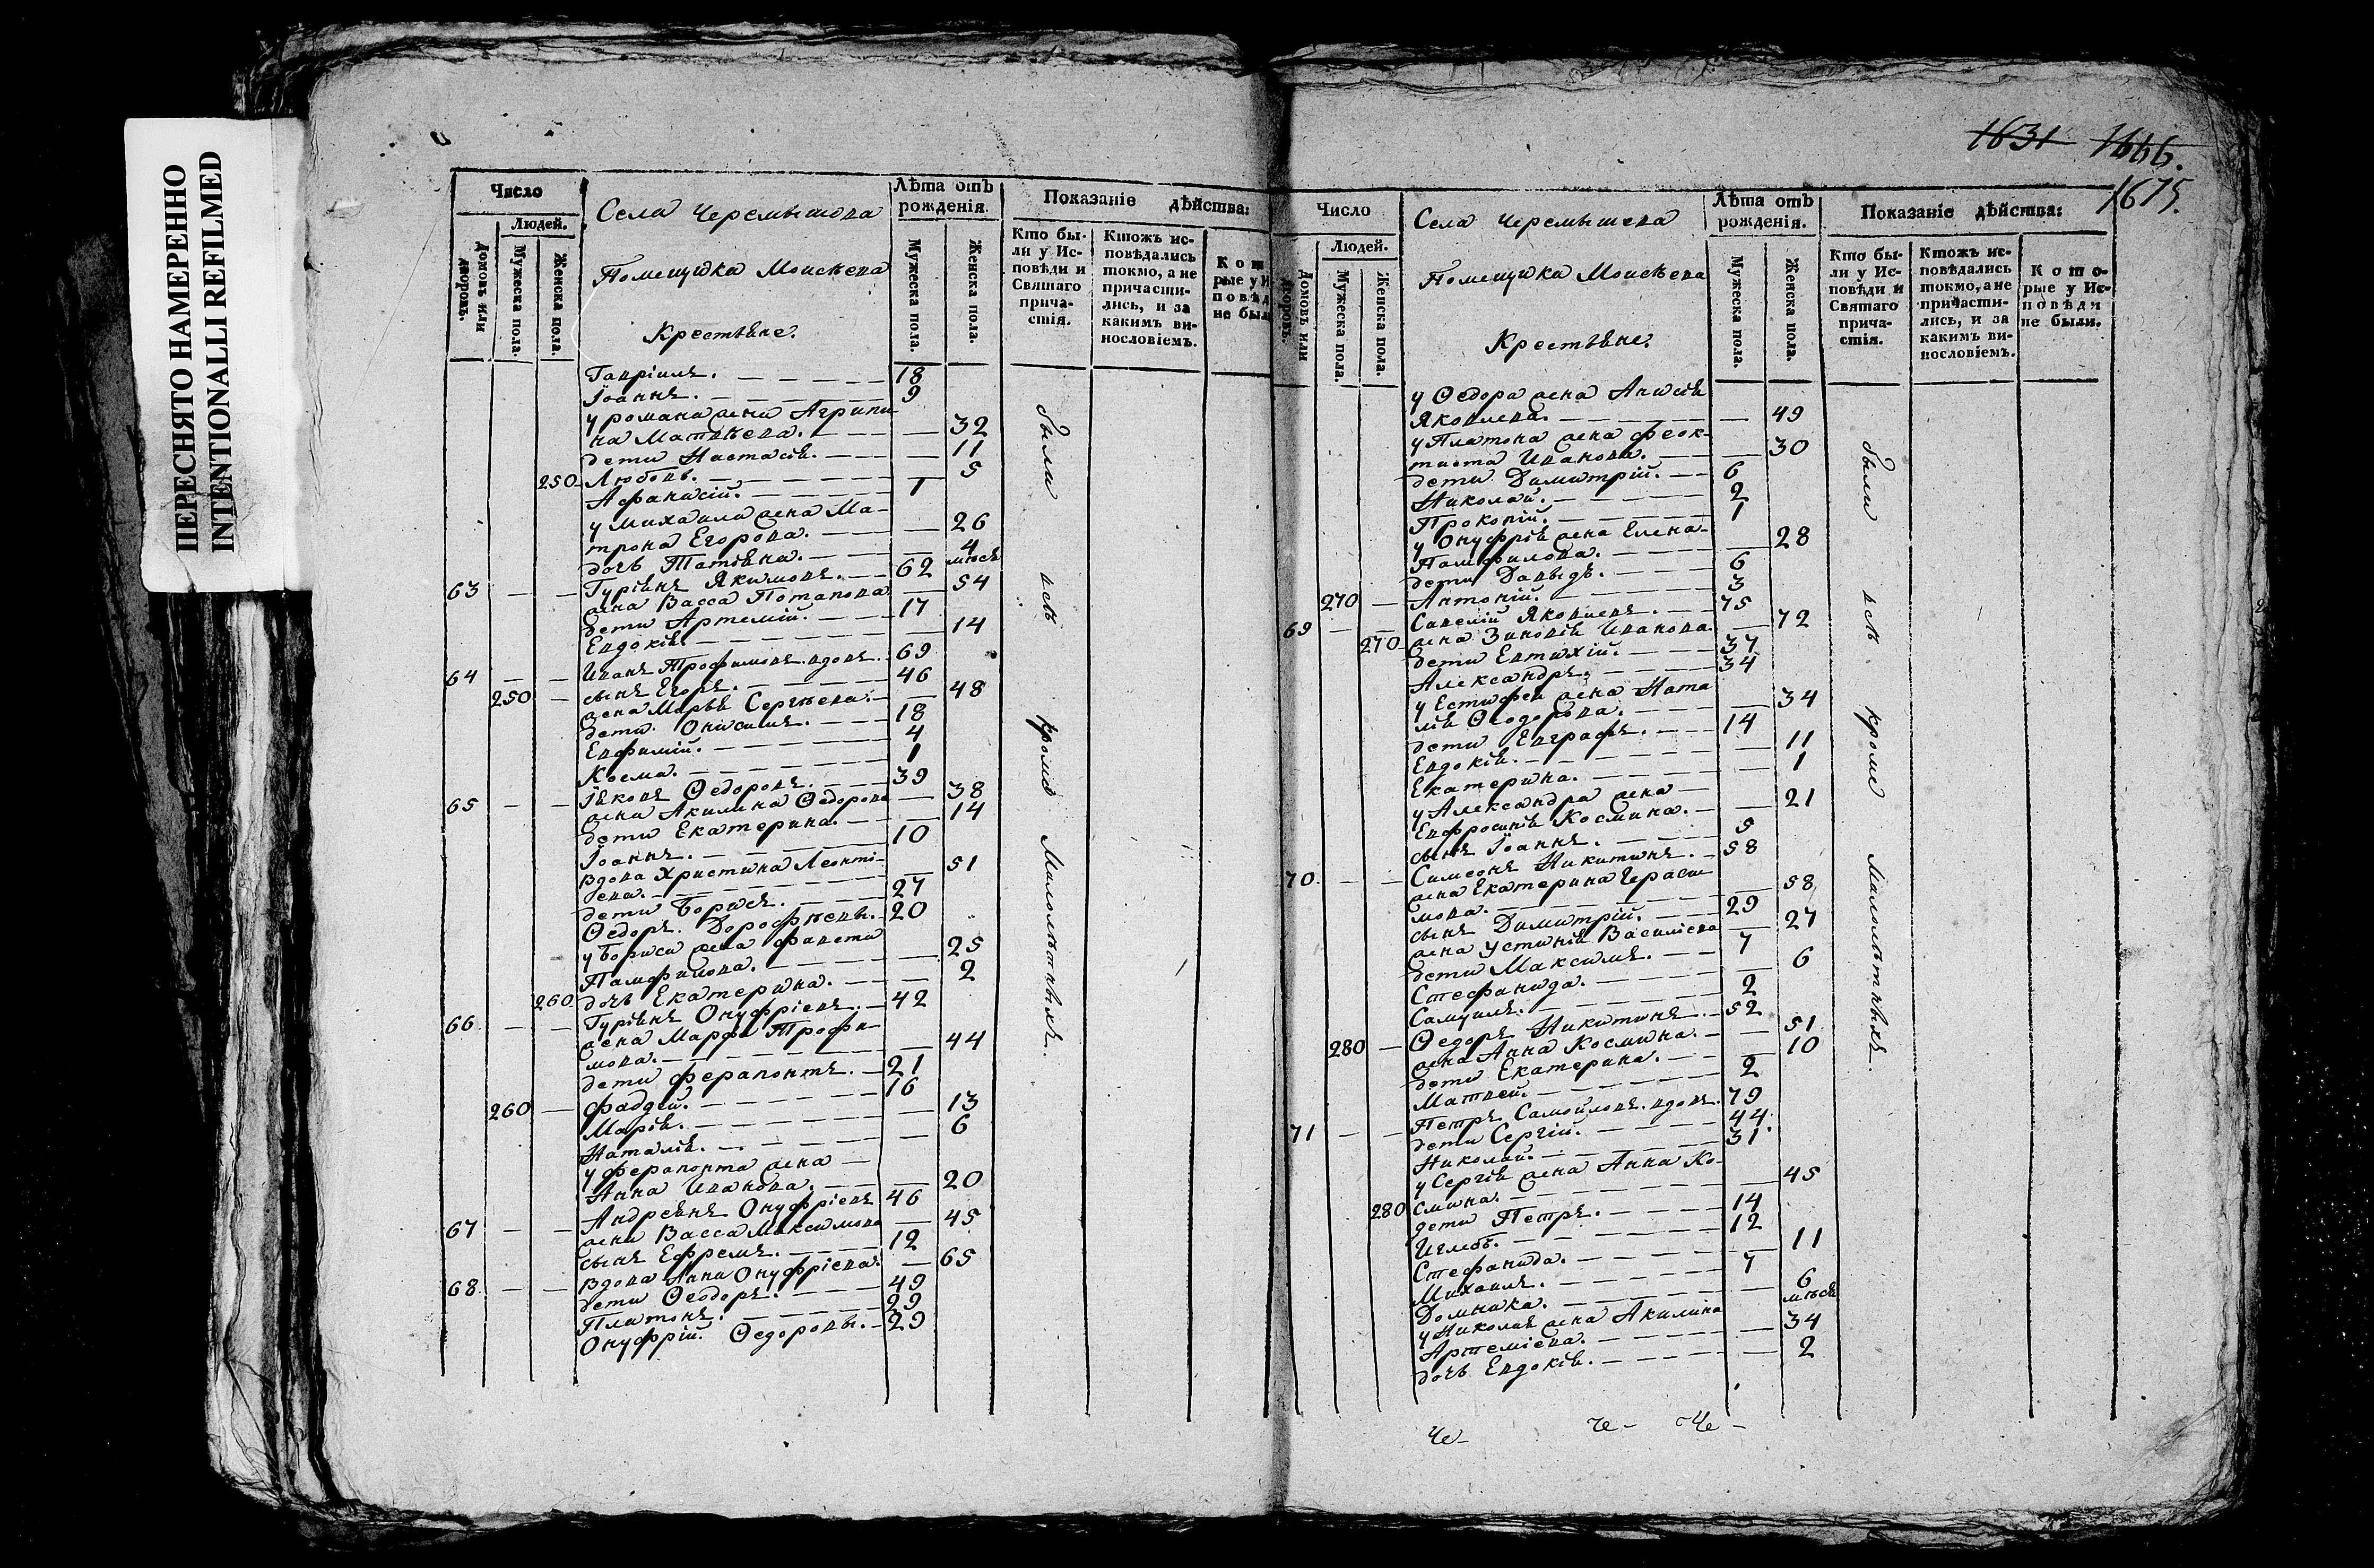 ПЕРЕСНЯТО НАМЕРЕННО
INTENTIONALLI REFILMED
Число
Людей.
Домовъ или дворовъ.
Мужеска пола.
Женска пола.
Села Черемышева
Помещика Мосѣева
Крестьяне.
Лѣта отъ рожденія.
Мужеска пола.
Женска пола.
Показаніе дѣйства:
Кто были у Исповѣди и Святаго причастія.
Ктожъ исповѣдались токмо, а не причастились, и за какимъ винословіемъ.
Кот
рые у И
повѣд
не был
Гавріилъ. 18
Іоаннъ. 9
у романа жена Агрипи
на Матвѣева. 32
дети Настасія. 11
250 Любовь. 5
Афанасій. 1
у михаила жена Ма-
трона Егорова. 26
дочь Татіяна. 4 месѣ
63 Гуріянъ Якимовъ. 62
жена Васса Потапова 54
дети Артемій. 17
Евдокія 14
64 Иванъ Трофимовъ вдовъ. 69
250 сынъ Егоръ. 46
жена Марья Сергѣева. 48
дети Онисимъ. 18
Евфимій. 4
Косма. 1
65 Іяковъ Ѳедоровъ. 39
жена Акилина Ѳедорова 38
дети Екатерина. 14
Іоаннъ. 10
вдова Христина Леонті-
ева. 51
дети Борисъ. 27
Ѳедоръ. Дорофѣевы. 20
у Бориса жена фавста
Памфилова. 25
260 дочь Екатерина. 2
66 Гуріянъ Онуфріевъ. 42
жена Марфа Трофи-
мова. 44
дети Ферапонтъ. 21
260 фаддей. 16
Марія. 13
Наталія. 6
у ферапонта жена
Анна Иванова. 20
67 Андреянъ Онуфріевъ 46
жена Васса Максимова 45
сынъ Ефремъ. 12
68 вдова Анна Онуфріева. 65
дети Ѳеодоръ. 49
Платонъ. 29
Онуфрій. Ѳедоровы. 29
были всѣ кромѣ Малолѣтныхъ.
1631 1666.
1675.
Число
Людей.
Домовъ или дворовъ.
Мужеска пола.
Женска пола.
Села Черемышева
Помещика Мосѣева
Крестьяне.
Лѣта отъ рожденія.
Мужеска пола.
Женска пола.
Показаніе дѣйства:
Кто были у Исповѣди и Святаго причастія.
Ктожъ исповѣдались токмо, а не причастились, и за какимъ винословіемъ.
Которые у Исповѣди не были.
у Ѳедора жена Анисія
Яковлева. 49
у Платона жена феок-
тиста Иванова. 30
дети Димитрій. 6
Николай. 2
Прокопій. 1
у Онуфрія жена Елена
Памфилова. 28
дети Давыдъ. 6
270 Антоній. 3
69 Савелій Яковлевъ. 75
270 жена Зиновія Иванова. 72
дети Евтихій. 37
Александръ. 34
у Естифея жена Ната
лія Ѳеодорова. 34
дети Евграфъ. 14
Евдокія. 11
Екатерина. 1
у Александра жена
Евфросинія Космина. 21
сынъ Іоаннъ. 5
70 Симеонъ Никитинъ. 58
жена Екатерина Гераси
мова. 58
сынъ Димитрій. 29
жена Устинія Василіева 27
дети Максимъ. 7
Стефанида. 6
Самуилъ. 2
280 Ѳедоръ Никитинъ. 52
жена Анна Космина. 51
дети Екатерина. 10
Матвей. 2
71 Петръ Самойловъ. вдовъ. 79
дети Сергій. 44
Николай. 31
у Сергія жена Анна Ко-
280 смина. 45
дети Петръ. 14
Иглебъ. 12
Стефанида. 11
Михаилъ. 7
Домника. 6 месѣ
у Николая жена Акилина
Артеміева. 34
дочь Евдокія. 2
были всѣ кроме Малолѣтныхъ.
Че- че- Че-